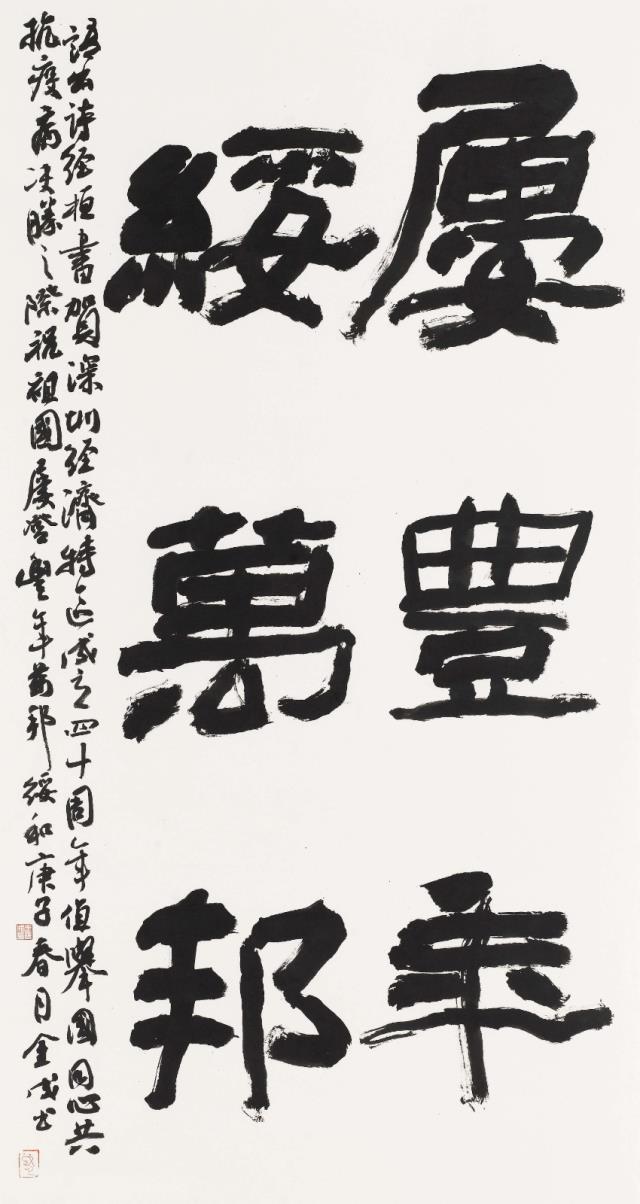 屢豐年
綏萬邦
語出詩經桓書賀深圳經濟特區成立四十周年值舉國同心共
抗疫病決勝之際祝祖國屢登豐年萬邦綏和庚子春月金成書